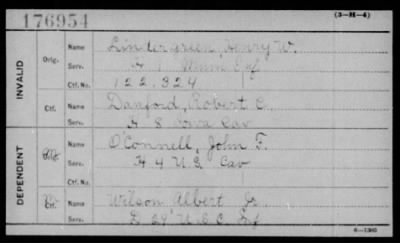 176954 (3-H-4)
INVALID
Orig.
Name Lindergreen, Henry W.
Serv. H 1 Minn Inf
Ctf. No. 122,324
Ctf.
Name Danford, Robert C.
Serv. H 8 Iowa Cav
DEPENDENT
Name O'Connell, John F.
Serv. H 4 U.S. Cav
Ctf. No.
Ctf.
Name Wilson Albert Jr.
Serv. D 29 U.S.C. Inf
6-1380